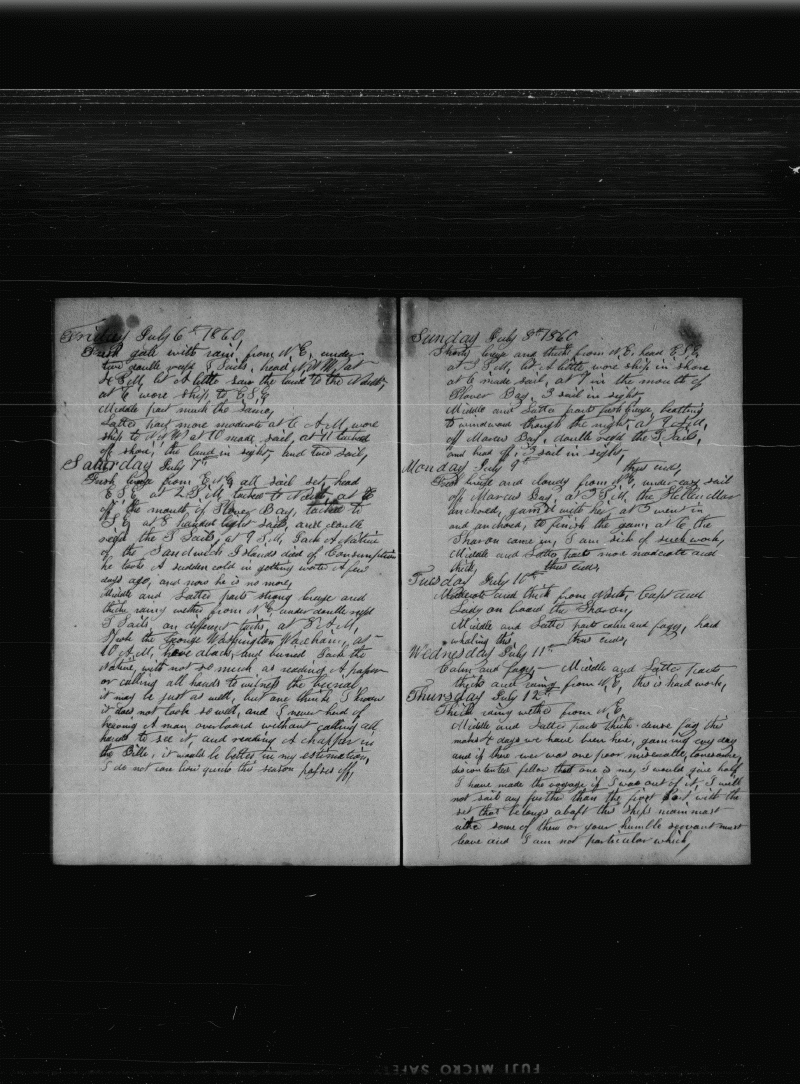 Friday July 6th 1860,
Fresh gale with rain, from N.E, under
two double reefs & Jacks, head N.N.W, at
4 P.M. let A little saw the land to the N
at 6 wore ship, to E.S.E
Middle part much the same,
Latter part more moderate at 6 A.M, wore
ship to N.N.W at 10 made sail, at 11 tacked
off shore, the land in sight, and two sail,
Saturday July 7th
Fresh breeze from E.N.E all sail set head
E.S.E, at 2 P.M, tacked to North, at 6
off the mouth of Plover Bay, tacked to
S.E, at 8 handed light sails, and double
reefd the T Sails, at 9 P.M, Jack A Native
of the Sandwich Islands died of Consumption
he took A sudden cold in getting water A few
days ago, and now he is no more,
Middle and Latter parts strong breeze and
thick rainy wether from N.E, under double reefd
T Sails on different tacks, at 8 A.M,
Spoke the George Washington Wareham, at
10 A.M, hove aback, and buried Jack the
Native, with not so much as reading A prayer
or calling all hands to witness the
it may be just as well, but one thinks I know
it does not look so well, and I never herd of
heaving A man overboard without calling all
hands to see it, and reading A chapter in
the Bible, it would be better in my estimation,
I do not care how quick this season passes off,
Sunday July 8th 1860
Strong breeze and thick from N.E, head E.S.E
at 3 P.M, let A little, wore ship in shore
at 6 made sail, at 7 in the mouth of
Plover Bay, 3 sail in sight,
Middle and Latter parts fresh breeze, beating
to windward though the night, at
off Marcus Bay, double reefd the T Sails,
and head off, 3 sail in sight,
Monday July 9th thus ends,
Fresh breeze and cloudy from N.E, under easy sail
off Marcus Bay, at 3 P.M, the
anchored, gam'd with her, at 5 went in
and anchored, to finish the gam, at 6 the
Sharon came in, I am sick of such work,
Middle and Latter parts more moderate and
thick, thus ends,
Tuesday July 10th
Moderate and thick from North, Capt and
Lady on board the Sharon,
Middle and Latter parts calm and foggy, hard
whaling this, thus ends,
Wednesday July 11th
Calm and foggy — Middle and Latter parts
thick and rainy from N.E, this is hard work,
Thursday July 12th
Thick rainy wether from N.E
Middle and Latter parts thick dense fog this
makes 4 days we have been here, gaming every day
and if there ever was one poor miserable, lonesome,
discontented fellow that one is me, I would give half
I have made the voyage if I was out of it, I will
not sail any further than the first port with the
set that belongs abaft this ships main mast
some of them or your humble servant must
leave and I am not particular which,
FUJI MICRO SAFET